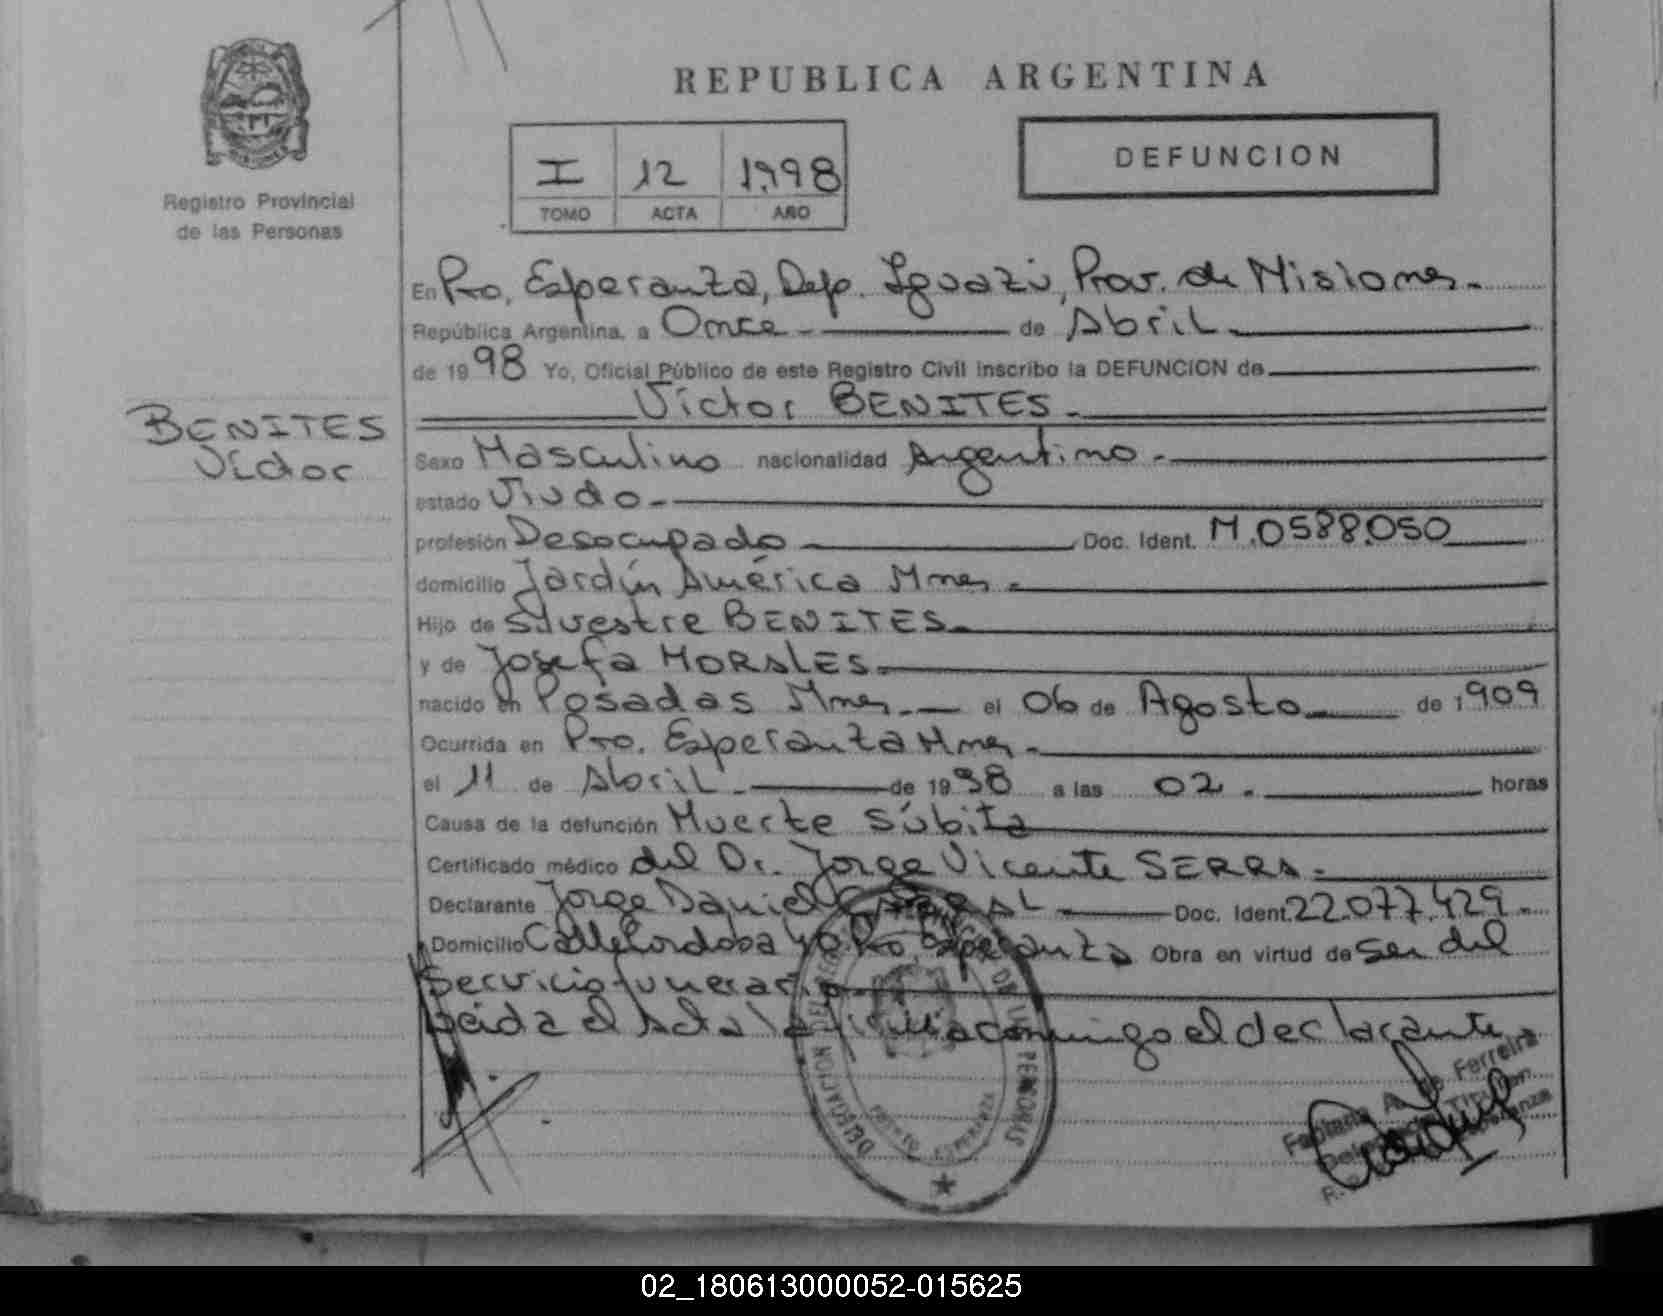 REPUBLICA ARGENTINA
DEFUNCION
I 12 1998
TOMO ACTA AÑO
Registro Provincial
de las Personas
En Pto. Esperanza, Dep. Iguazú, Prov. de Misiones.
República Argentina, a Once de Abril
de 1998 Yo, Oficial Público de este Registro Civil inscribo la DEFUNCION de
Víctor BENITES.
BENITES
Víctor
Sexo Masculino nacionalidad Argentino.
estado Viudo.
profesión Desocupado Doc. Ident. M.0588.050
domicilio Jardín América Mnes.
Hijo de Silvestre BENITES.
y de Josefa MORALES.
nacido en Posadas Mnes. el 06 de Agosto de 1909
Ocurrida en Pto. Esperanza Mnes.
el 11 de Abril de 1998 a las 02. horas
Causa de la defunción Muerte Súbita
Certificado médico del Dr. Jorge Vicente SERRA.
Declarante Jorge Daniel Doc. Ident. 22.077.429.
Domicilio Calle Cordoba Pto. Esperanza Obra en virtud de ser del
Servicio funerario
Leida el Acta la firma conmigo el declarante.
DELEGACION DE LAS PERSONAS
PUERTO ESPERANZA
Fabiana A. de Ferreira
02_180613000052-015625